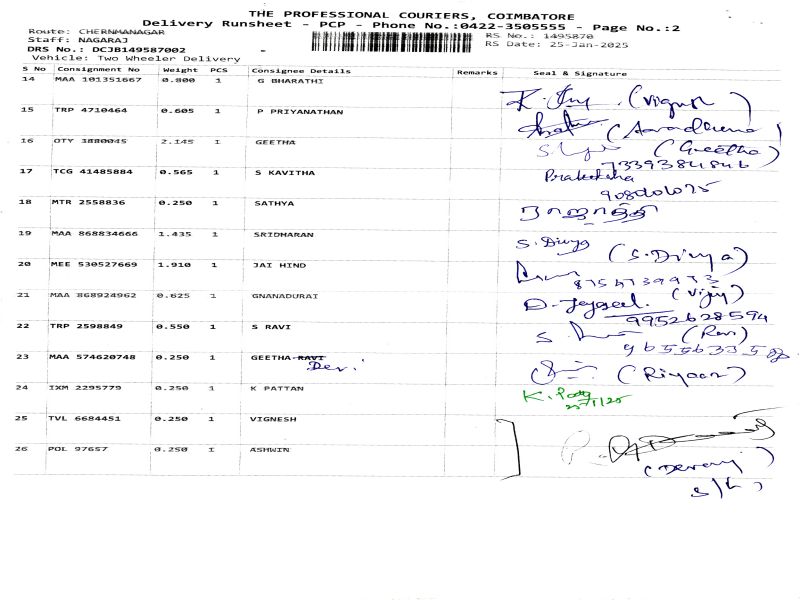 THE PROFESSIONAL COURIERS, COIMBATORE
Delivery Runsheet - PCP - Phone No.:0422-3505555 - Page No.:2
Route: CHERNMANAGAR RS No.: 1495870
Staff: NAGARAJ RS Date: 25-Jan-2025
DRS No.: DCJB149587002 -
Vehicle: Two Wheeler Delivery
S No Consignment No Weight PCS Consignee Details Remarks Seal & Signature
14 MAA 101351667 0.800 1 G BHARATHI (Vignesh)
15 TRP 4710464 0.605 1 P PRIYANATHAN (Aaradhana)
16 1 GEETHA (Greetha)
2.145 7339384846
17 TCG 41485884 0.565 1 S KAVITHA
18 MTR 2558836 0.250 1 SATHYA
19 MAA 868834666 1.435 1 SRIDHARAN S. Divya (S. Divya)
20 MEE 530527669 1.910 1 JAI HIND
21 MAA 868924962 0.625 1 GNANADURAI (Vijay)
9952628594
22 TRP 2598849 0.550 1 S RAVI (Ravi)
23 MAA 574620748 0.250 1 GEETHA RAVI (Riyaan)
24 IXM 2295779 0.250 1 K PATTAN K.
25/1/25
25 TVL 6684451 0.250 1 VIGNESH
26 POL 97657 0.250 1 ASHWIN
(Devaraj)